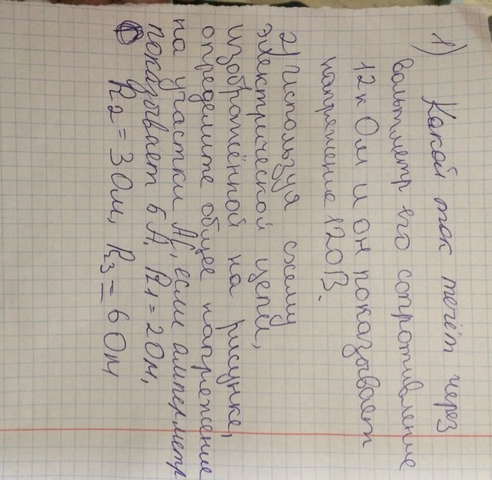 1) Какой ток течёт через
вольтметр его сопротивление
12 кОм и он показывает
напряжение 120В.
2) Используя схему
электрической цепи,
изображённой на рисунке,
определите общее напрежение
на участки АС, если амперметр
показывает 5 А, R1 = 2 Ом,
R2 = 3 Ом, R3 = 6 Ом